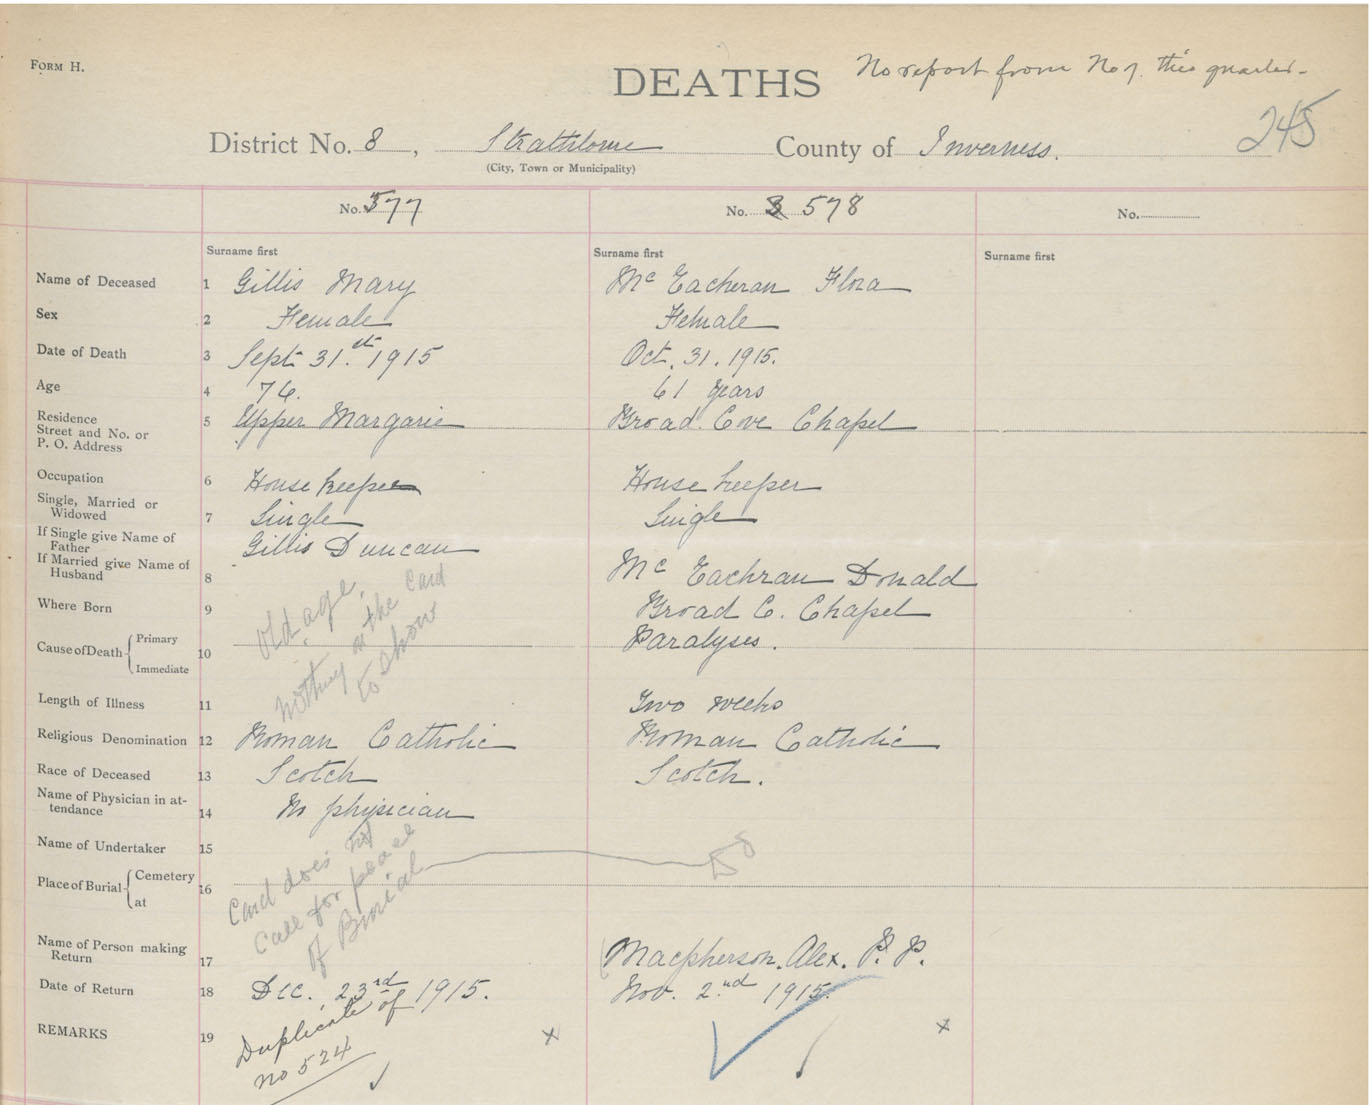 FORM H.
DEATHS
No report from No 7. this quarter.
245
District No. 8, Strathlorne County of Inverness.
(City, Town or Municipality)
No. 577
No. 3 578
No.
Surname first
Surname first
Surname first
Name of Deceased 1 Gillis Mary Mc Eacheran Flora
Sex 2 Female Female
Date of Death 3 Sept 31.st 1915 Oct. 31. 1915.
Age 4 76. 61 years
Residence
Street and No. or
P. O. Address 5 Upper Margarie Broad Cove Chapel
Occupation 6 House keeper House keeper
Single, Married or
Widowed 7 Single Single
If Single give Name of
Father Gillis Duncan
If Married give Name of
Husband 8 Mc Eachran Donald
Where Born 9 Broad C. Chapel
Cause of Death { Primary
Immediate 10 Paralyses.
Old age.
nothing on the card
to show
Length of Illness 11 Two weeks
Religious Denomination 12 Roman Catholic Roman Catholic
Race of Deceased 13 Scotch Scotch.
Name of Physician in at-
tendance 14 No physician
Name of Undertaker 15
Place of Burial { Cemetery
at 16
Card does not
call for place
of Burial
Do
Name of Person making
Return 17 Macpherson. Alex. P. P.
Date of Return 18 Dec. 23rd 1915. Nov. 2.nd 1915.
REMARKS 19 Duplicate of
no 524
x
x